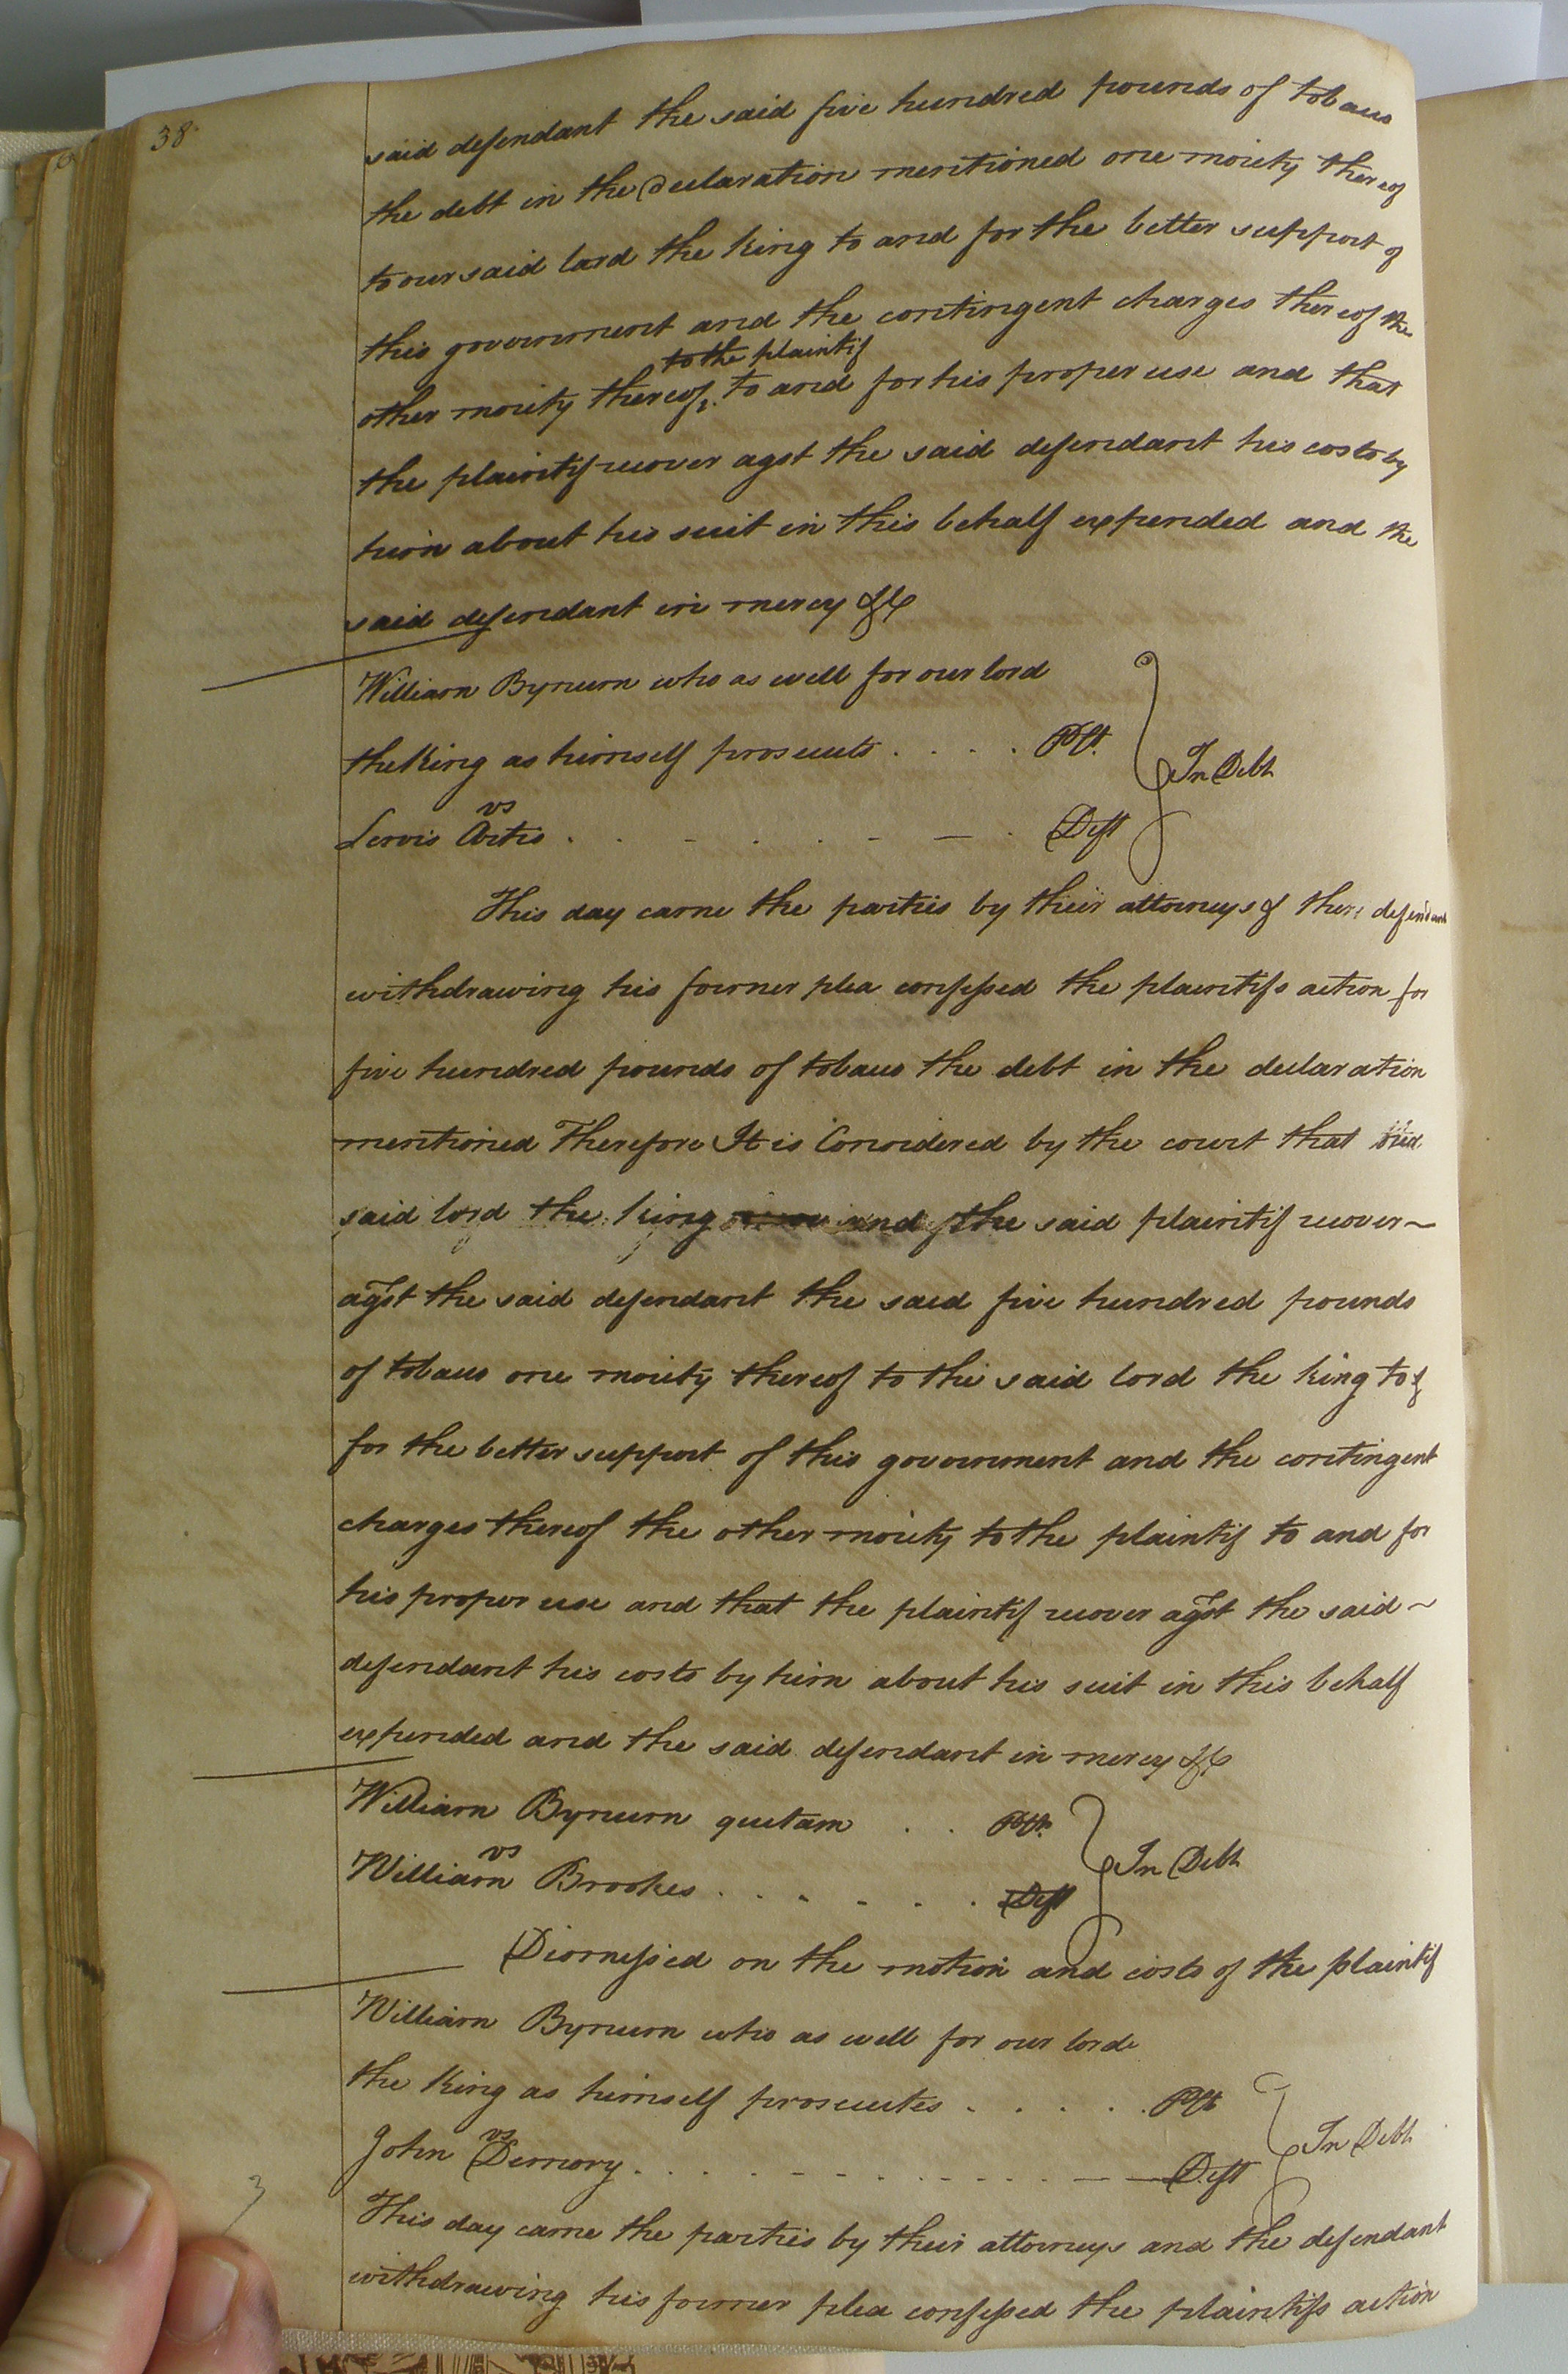 38
said defendant the said five hundred pounds of tobacco
the debt in the declaration mentioned one moiety thereof
to our said lord the king to and for the better support of
this government and the contingent charges thereof the
to the plaintif
other moiety thereof, to and for his proper use and that
the plaintif recover agst the said defendant his costs by
him about his suit in this behalf expended and the
said defendant in mercy &c
William Bynum who as well for our lord
the King as himself prosecuts . . . . Plt.
In Debt
vs
Lewis Artis . . . . . . . Deft
This day came the parties by their attorneys & the defendant
withdrawing his former plea confessed the plaintifs action for
five hundred pounds of tobacco the debt in the declaration
mentioned Therefore It is Considered by the court that
said lord the king and the said plaintif recover
agst the said defendant the said five hundred pounds
of tobacco one moiety thereof to the said lord the king to &
for the better support of this government and the contingent
charges thereof the other moiety to the plaintif to and for
his proper use and that the plaintif recover agst the said
defendant his costs by him about his suit in this behalf
expended and the said defendant in mercy &c
William Bynum quitam . . Plt.
In Debt
vs
William Brookes . . . . . . Deft
Dismessed on the motion and costs of the plaintif
William Bynum who as well for our lord
the King as himself prosecutes . . . . . Plt
In Debt
vs
John Demory . . . . . . . . . . Deft
This day came the parties by their attorneys and the defendant
withdrawing his former plea confessed the plaintifs action